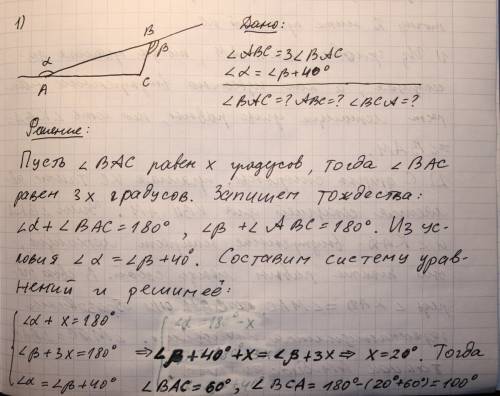 1)
Дано:
α
B
β
A
C
∠ABC=3∠BAC
∠α=∠β+40°
∠BAC=? ABC=? ∠BCA=?
Решение:
Пусть ∠BAC равен x градусов, тогда ∠BAC
равен 3x градусов. Запишем тождества:
∠α+∠BAC=180°, ∠β+∠ABC=180°. Из ус-
ловия ∠α=∠β+40°. Составим систему урав-
нений и решим её:
∠α+x=180°
∠β+3x=180° ⇒∠β+40°+x=∠β+3x⇒ x=20°. Тогда
∠α=∠β+40° ∠BAC=60°, ∠BCA=180°-(20°+60°)=100°